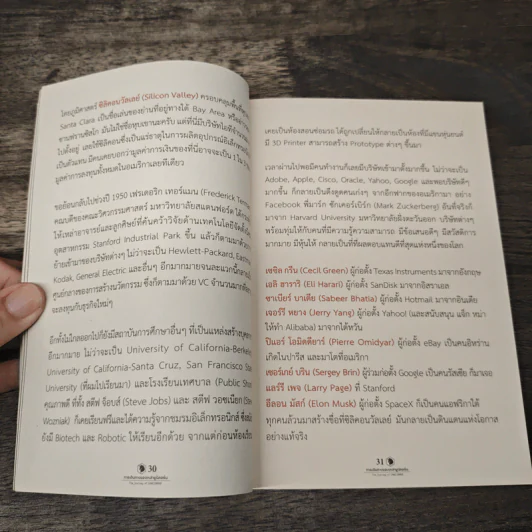 โดยภูมิศาสตร์ ซิลิคอนวัลเลย์ (Silicon Valley) ครอบคลุมพื้นที่
Santa Clara เป็นชื่อเล่นของย่านที่อยู่ทางใต้ Bay Area หรือ
ซานฟรานซิสโก มันไม่ใช่ชื่อหุบเขานะครับ แต่ที่นี่มีบริษัทไอที
ไปตั้งอยู่ เลยใช้ซิลิคอนซึ่งเป็นแร่ธาตุในการผลิตอุปกรณ์อิเล็ก
เป็นตัวแทน มีคนเคยบอกว่ามูลค่าการลงทุนของที่นี่อาจจะเป็น 1 ใน
มูลค่าการลงทุนทั้งหมดในอเมริกาเลยทีเดียว
ขอย้อนกลับไปช่วงปี 1950 เฟรเดอริก เทอร์แมน (Frederick
คณบดีของคณะวิศวกรรมศาสตร์ มหาวิทยาลัยสแตนฟอร์ด ได้
ให้เหล่าอาจารย์และลูกศิษย์ที่ค้นคว้าวิจัยด้านเทคโนโลยีจัดตั้ง
อุตสาหกรรม Stanford Industrial Park ขึ้น แล้วก็ตามมาด้วย
ย้ายเข้ามาของบริษัทต่างๆ ไม่ว่าจะเป็น Hewlett-Packard, Eastman
Kodak, General Electric และอื่นๆ อีกมากมายจนละแวกนี้กลาย
ศูนย์กลางของการสร้างนวัตกรรม ซึ่งก็ตามมาด้วย VC จำนวนมาก
จะลงทุนกับธุรกิจใหม่ๆ
อีกทั้งไม่ไกลออกไปก็ยังมีสถาบันการศึกษาอื่นๆ ที่เป็นแหล่งสร้าง
อีกมากมาย ไม่ว่าจะเป็น University of California-Berkeley
University of California-Santa Cruz, San Francisco
University (ที่ผมไปเรียนมา) และโรงเรียนเทศบาล (Public
คุณภาพดี ที่ทั้ง สตีฟ จ๊อบส์ (Steve Jobs) และ สตีฟ วอซเนียก
Wozniak) ก็เคยเรียนฟรีและได้ความรู้จากชมรมอิเล็กทรอนิกส์ ซึ่ง
ยังมี Biotech และ Robotic ให้เรียนอีกด้วย จากแต่ก่อนห้อง
30
เคยเป็นห้องสอนซ่อมรถ ได้ถูกเปลี่ยนให้กลายเป็นห้องที่มีแขนหุ่นยนต์
มี 3D Printer สามารถสร้าง Prototype ต่างๆ ขึ้นมา
เวลาผ่านไปพอมีคนทำงานก็เลยมีบริษัทเข้ามาตั้งมากขึ้น ไม่ว่าจะเป็น
Adobe, Apple, Cisco, Oracle, Yahoo, Google และพอบริษัทดีๆ
มากขึ้น ก็กลายเป็นดึงดูดคนเก่งๆ จากอีกฟากของอเมริกามา อย่าง
Facebook ที่มาร์ก ซักเคอร์เบิร์ก (Mark Zuckerberg) อันที่จริงก็
มาจาก Harvard University มหาวิทยาลัยฝั่งตะวันออก บริษัทต่างๆ
พร้อมทุ่มให้กับคนที่มีความรู้ความสามารถ มีข้อเสนอดีๆ มีสวัสดิการ
มากมาย มีหุ้นให้ กลายเป็นที่ที่ผลตอบแทนดีที่สุดแห่งหนึ่งของโลก
เซซิล กรีน (Cecil Green) ผู้ก่อตั้ง Texas Instruments มาจากอังกฤษ
เอลิ ฮารารี (Eli Harari) ผู้ก่อตั้ง SanDisk มาจากอิสราเอล
ซาเบียร์ บาเตีย (Sabeer Bhatia) ผู้ก่อตั้ง Hotmail มาจากอินเดีย
เจอร์รี หยาง (Jerry Yang) ผู้ก่อตั้ง Yahoo! (และสนับสนุน แจ็ก หม่า
ให้ทำ Alibaba) มาจากไต้หวัน
ปิแอร์ โอมิดดียาร์ (Pierre Omidyar) ผู้ก่อตั้ง eBay เป็นคนอิหร่าน
เกิดในปารีส และมาโตที่อเมริกา
เซอร์เกย์ บริน (Sergey Brin) ผู้ร่วมก่อตั้ง Google เป็นคนรัสเซีย ก็มาเจอ
แลร์รี เพจ (Larry Page) ที่ Stanford
อีลอน มัสก์ (Elon Musk) ผู้ก่อตั้ง SpaceX ก็เป็นคนแอฟริกาใต้
ทุกคนล้วนมาสร้างชื่อที่ซิลิคอนวัลเลย์ มันกลายเป็นดินแดนแห่งโอกาส
อย่างแท้จริง
31